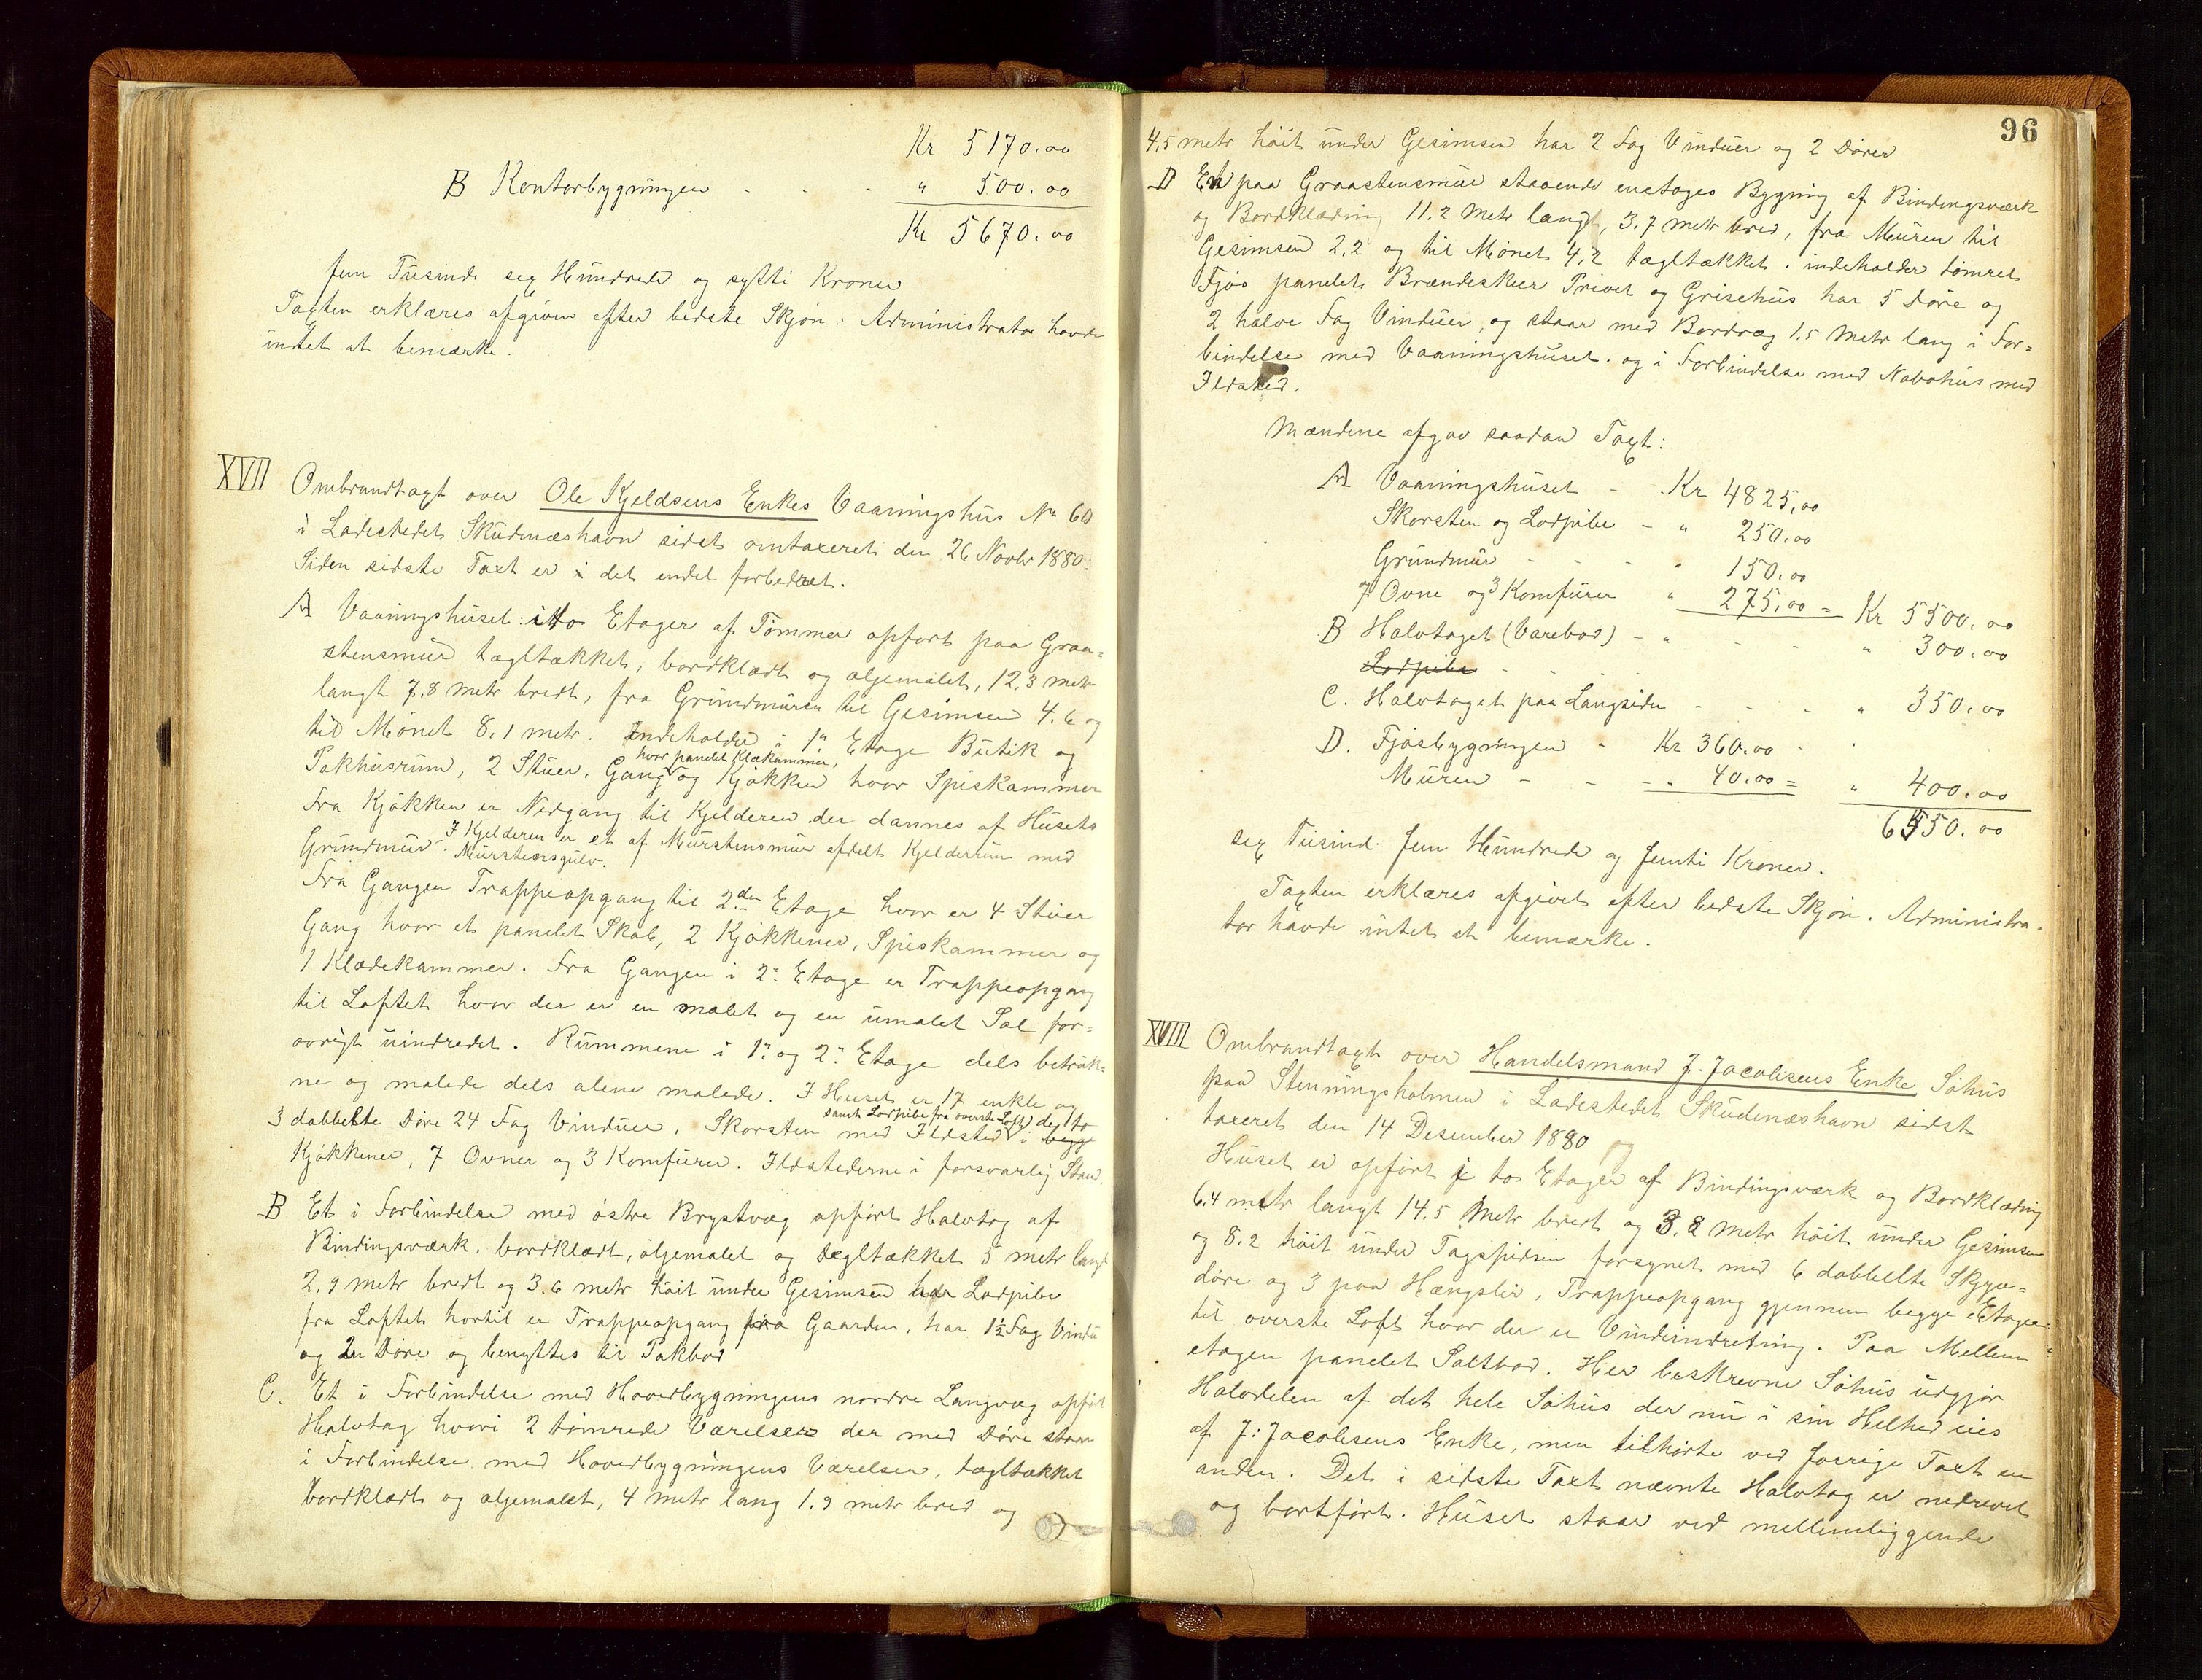 Kr 5170.00
B Kontorbygningen - - - " 500.00
Kr 5670.00
fem Tusinde sex Hundrede og sytti Kroner
Taxten erklæres afgiven efter bedste Skjøn: Administrator havde
intet at bemærke.
XVII Ombrandtaxt over Ole Kjeldsens Enkes Vaaningshus No 60
i Ladestedet Skudesnæshavn sidst omtaxeret den 26 Novbr 1880.
Siden sidste Taxt er i det endel forbedret.
A Vaaningshuset: i to Etager af Tømmer opført paa Graa=
stensmur tægltækket, bordklædt og oljemalet, 12,3 metr
langt 7,8 metr bredt, fra Grundmuren til Gesimsen 4.6 og
til Mønet 8,1 metr. Indeholder i 1ste Etage Butik og
hvor panelet Klækammer,
Pakhusrum, 2 Stuer, Gang og Kjøkken hvor Spiskammer
Fra Kjøkken er Nedgang til Kjelderen der dannes af Husets
Grundmur. I Kjelderen er et af Murstensmur afdelt Kjelderrum med
Murstensgulv.
Fra Gangen Trappeopgang til 2den Etage hvor er 4 Stuer
Gang hvor et panelet Skab, 2 Kjøkkener, Spiskammer og
1 Klædekammer. Fra Gangen i 2n Etage er Trappeopgang
til Loftet hvor der er en malet og en umalet Sal for=
øvrigt uindredet. Rummene i 1n og 2n Etage dels betruk=
ne og malede dels alene malede. I Huset er 17 enkle og
samt Lodpibe fra øverste Loft de to
3 dobbelte Døre 24 Fag Vinduer, Skorsten med Ildsted i begge
Kjøkkener, 7 Ovner og 3 Komfurer. Ildstederne i forsvarlig Stand.
B Et i Forbindelse med østre Brystvæg opført Halvtag af
Bindingsværk, bordklædt, oljemalet og tægltækket 5 metr langt
2,9 metr bredt og 3.6 metr høit under Gesimsen har Lodpibe
fra Loftet hortil er Trappeopgang fra Gaarden, har 1½ Fag Vindu
og 2n Døre og benyttes til Pakbod
C. Et i Forbindelse med Hovedbygningens nordre Langvæg opført
Halvtag hvori 2 tømrede Værelser der med Døre staar
i Forbindelse med Hovedbygningens Værelser, tægltækket
bordklædt og oljemalet, 4 metr lang 1.9 metr bred og
96
4,5 metr høit under Gesimsen har 2 Fag Vinduer og 2 Dører
D En paa Graastensmur staaende enetages Bygning af Bindingsværk
og Bordklædning 11.2 Metr langt, 3.7 metr bred, fra Muren til
Gesimsen 2,2 og til Mønet 4,2 tægltækket. indeholder tømret
Fjøs panelet Brændeskur Privet og Grisehus har 5 Døre og
2 halve Fag Vinduer, og staar med Bordvæg 1.5 Metr lang i For=
bindelse med Vaaningshuset. og i Forbindelse med Nabohus med
Ildsted.
Mændene afgav saadan Taxt:
A Vaaningshuset - Kr 4825,00
Skorsten og Lodpibe - " 250.00
Grundmur - - - " 150.00
7 Ovne og 3 Komfurer " 275,00 = Kr 5500.00
B Halvtaget (Varebod) - " - - " 300.00
Lodpibe - -
C. Halvtaget paa Langsiden - - - " 350.00
D. Fjøsbygningen - Kr 360.00 - -
Muren - - - " 40.00 = " 400.00
6550.00
sex Tusind. fem Hundrede og femti Kroner.
Taxten erklæres afgivet efter bedste Skjøn. Administra=
tor havde intet at bemærke.
XVIII Ombrandtaxt over Handelsmand J. Jacobsens Enke Søhus
paa Steiningsholmen i Ladestedet Skudenæshavn sidst
taxeret den 14 Desember 1880
Huset er opført i to Etager af Bindingsværk og Bordklædning
6,4 metr langt 14.5 Metr bredt og 3.8 metr høit under Gesimsen
og 8.2 høit under Tagspidsen forsynet med 6 dobbelte Skyve=
døre og 3 paa Hængsler, Trappeopgang gjennem begge Etager
til øverste Loft hvor der er Vindeindretning. Paa Mellem=
etagen panelet Saltbod. Her beskrevne Søhus udgjør
Halvdelen af det hele Søhus der nu i sin Helhed eies
af J: Jacobsens Enke, men tilhørte ved forrige Taxt en
anden. Det i sidste Taxt nævnte Halvtag er nedrevet
og bortført. Huset staar ved mellemliggende